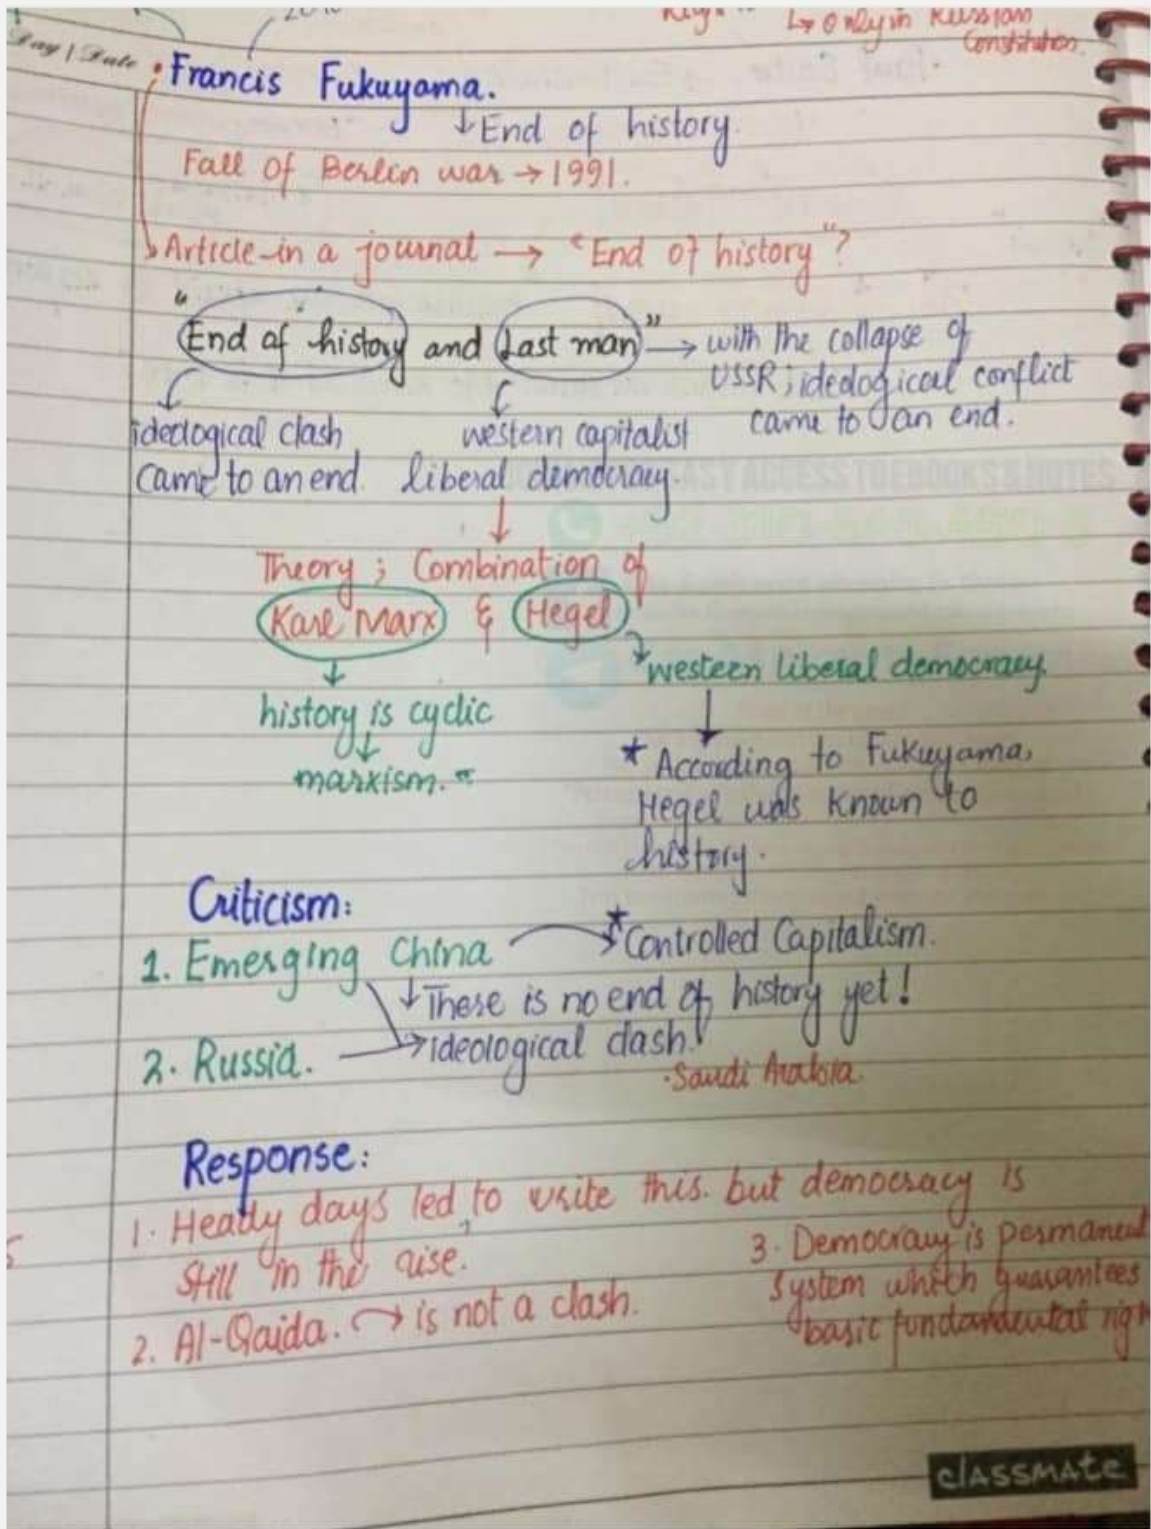 Only in Russian
Constitution
Day | Date
Francis Fukuyama.
↓ End of history.
Fall of Berlin war → 1991.
Article in a journal → "End of history"?
"End of history and Last man" → with the collapse of
USSR; ideological conflict
came to an end.
ideological clash
came to an end.
western capitalist
liberal democracy.
Theory ; Combination of
Karl Marx & Hegel
western liberal democracy.
history is cyclic
marxism.
* According to Fukuyama,
Hegel was known to
history.
Criticism:
1. Emerging China
* Controlled Capitalism.
There is no end of history yet!
2. Russia. → ideological clash.
• Saudi Arabia.
Response:
1. Heady days led to write this. but democracy is
still in the rise.
2. Al-Qaida. → is not a clash.
3. Democracy is permanent
system which guarantees
basic fundamental righ
classmate